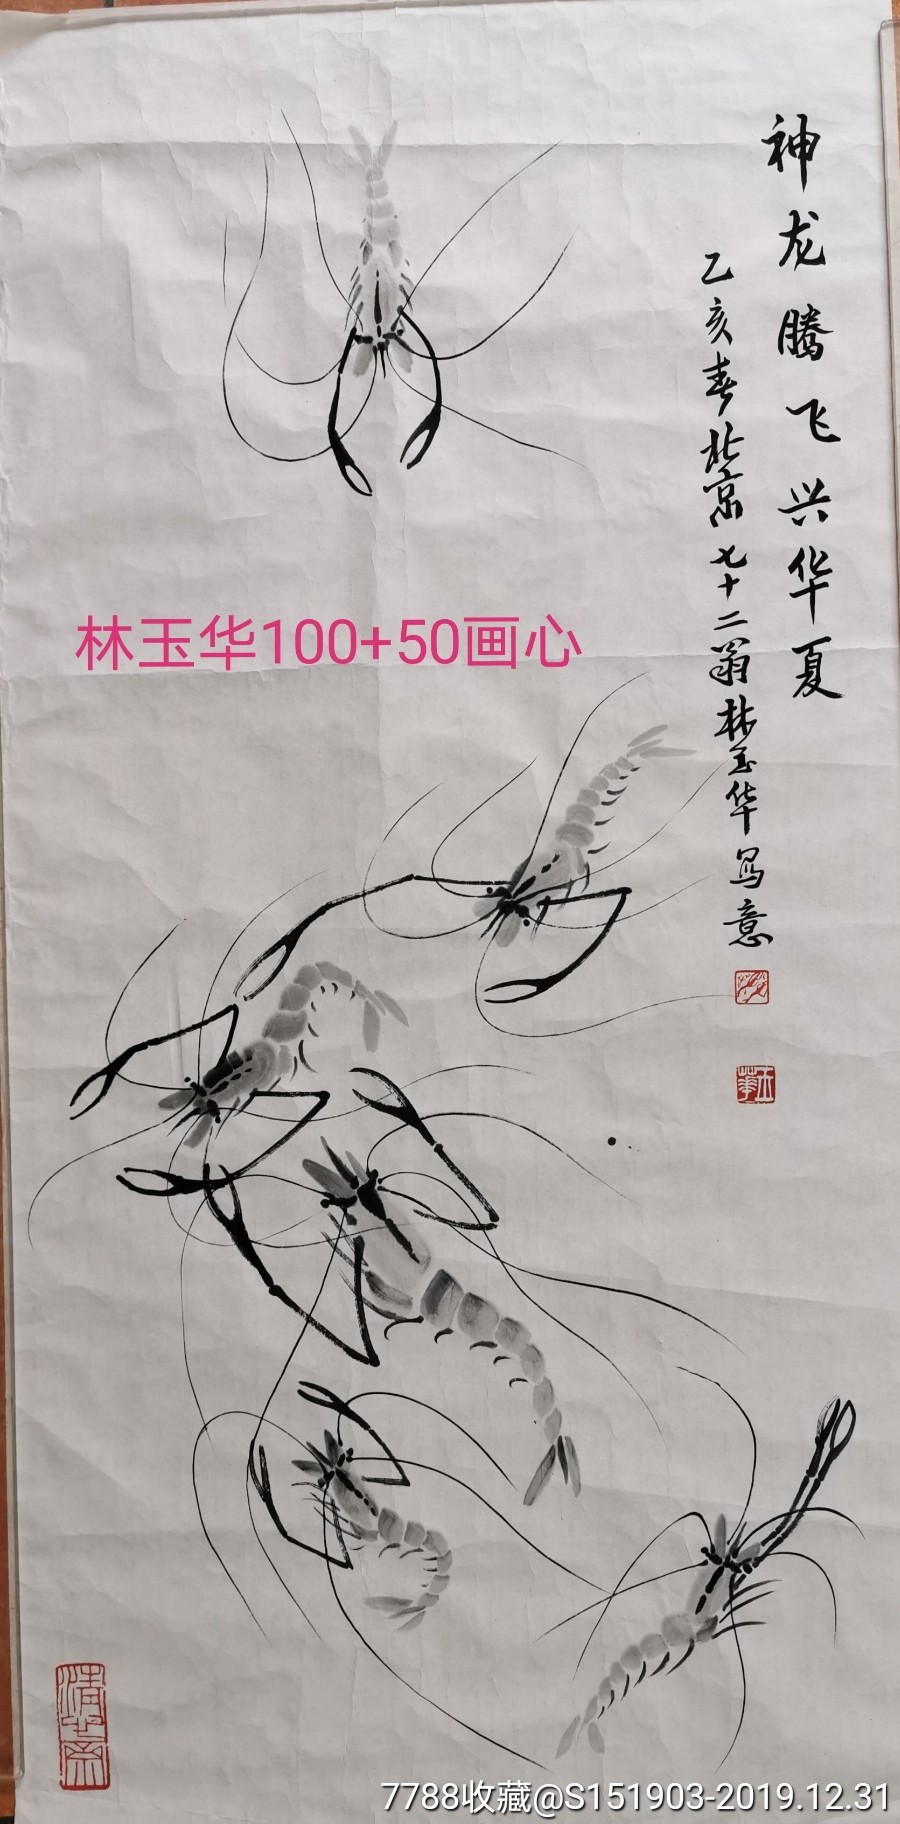 神龙腾飞兴华夏
乙亥春北京七十二翁林玉华写意
林玉华100+50画心
玉華
7788收藏@S151903-2019.12.31